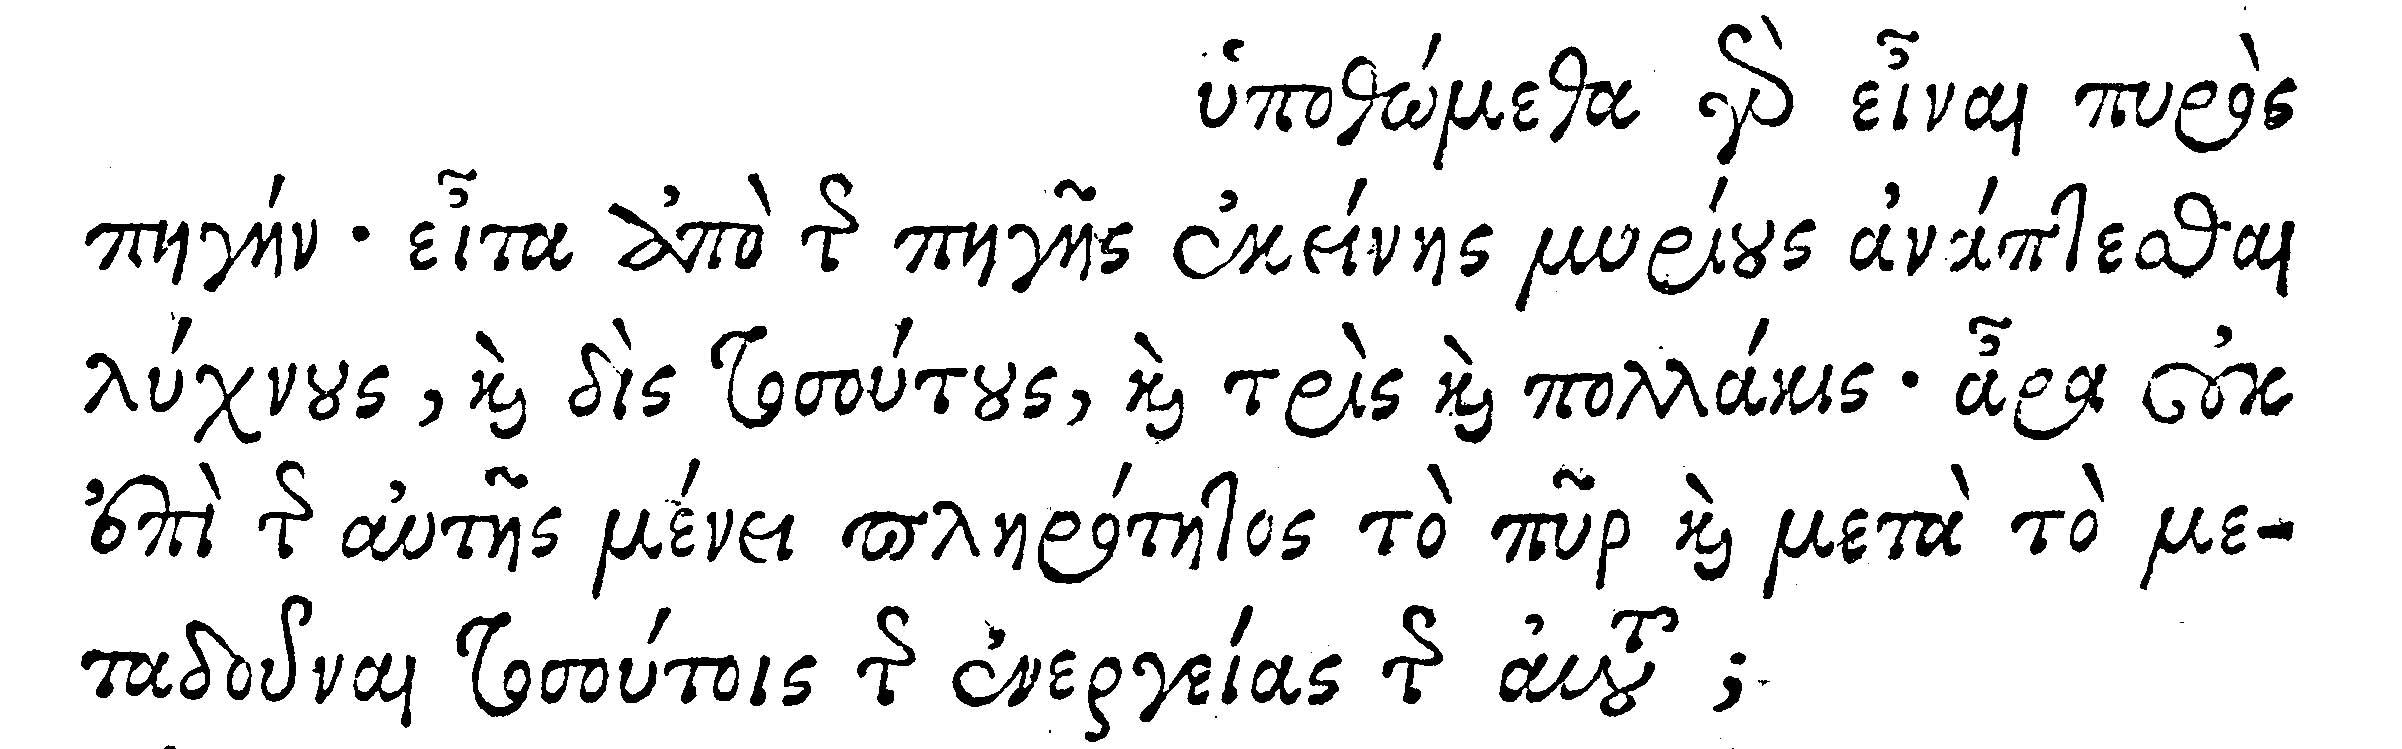 ὑποθώμεθα γὰρ εἶναι πυρὸς
πηγήν· εἶτα ἀπὸ τῆς πηγῆς ἐκείνης μυρίους ἀνάπτεσθαι
λύχνους, καὶ δὶς τοσούτους, καὶ τρὶς καὶ πολλάκις· ἆρα οὐκ
ἐπὶ τῆς αὐτῆς μένει πληρότητος τὸ πῦρ καὶ μετὰ τὸ με-
ταδοῦναι τοσούτοις τῆς ἐνεργείας τῆς αὐτοῦ;